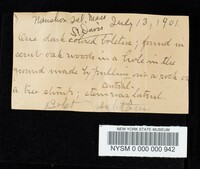 Naushon Isl. Mass July 13, 1901.
S. Davis
One dark colored Boletus; found in
scrub oak woods in a hole in the
ground made by pulling out a rock or
a tree stump; stem was lateral.
central.
Bolet
NEW YORK STATE MUSEUM
NYSM 0 000 000 942